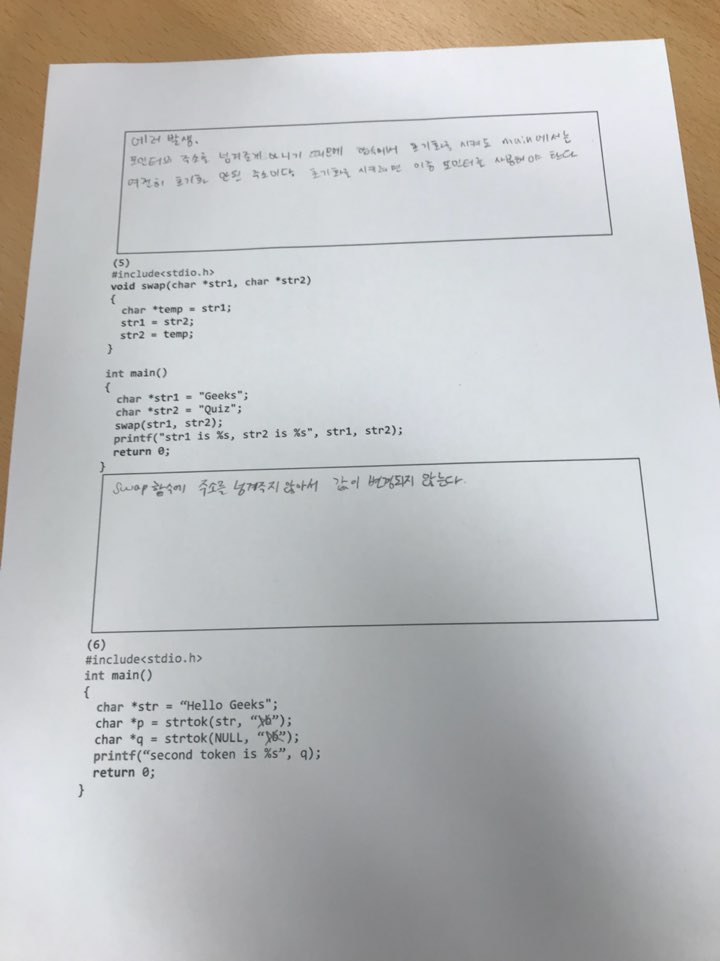 에러 발생.
포인터의 주소를 넘겨준게 아니기 때문에 함수에서 초기화를 시켜도 main에서는
여전히 초기화 안된 주소이다 초기화를 시키려면 이중 포인터를 사용해야 한다
(5)
#include<stdio.h>
void swap(char *str1, char *str2)
{
char *temp = str1;
str1 = str2;
str2 = temp;
}
int main()
{
char *str1 = "Geeks";
char *str2 = "Quiz";
swap(str1, str2);
printf("str1 is %s, str2 is %s", str1, str2);
return 0;
}
swap 함수에 주소를 넘겨주지 않아서 값이 변경되지 않는다.
(6)
#include<stdio.h>
int main()
{
char *str = “Hello Geeks";
char *p = strtok(str, “”);
char *q = strtok(NULL, “”);
printf(“second token is %s”, q);
return 0;
}